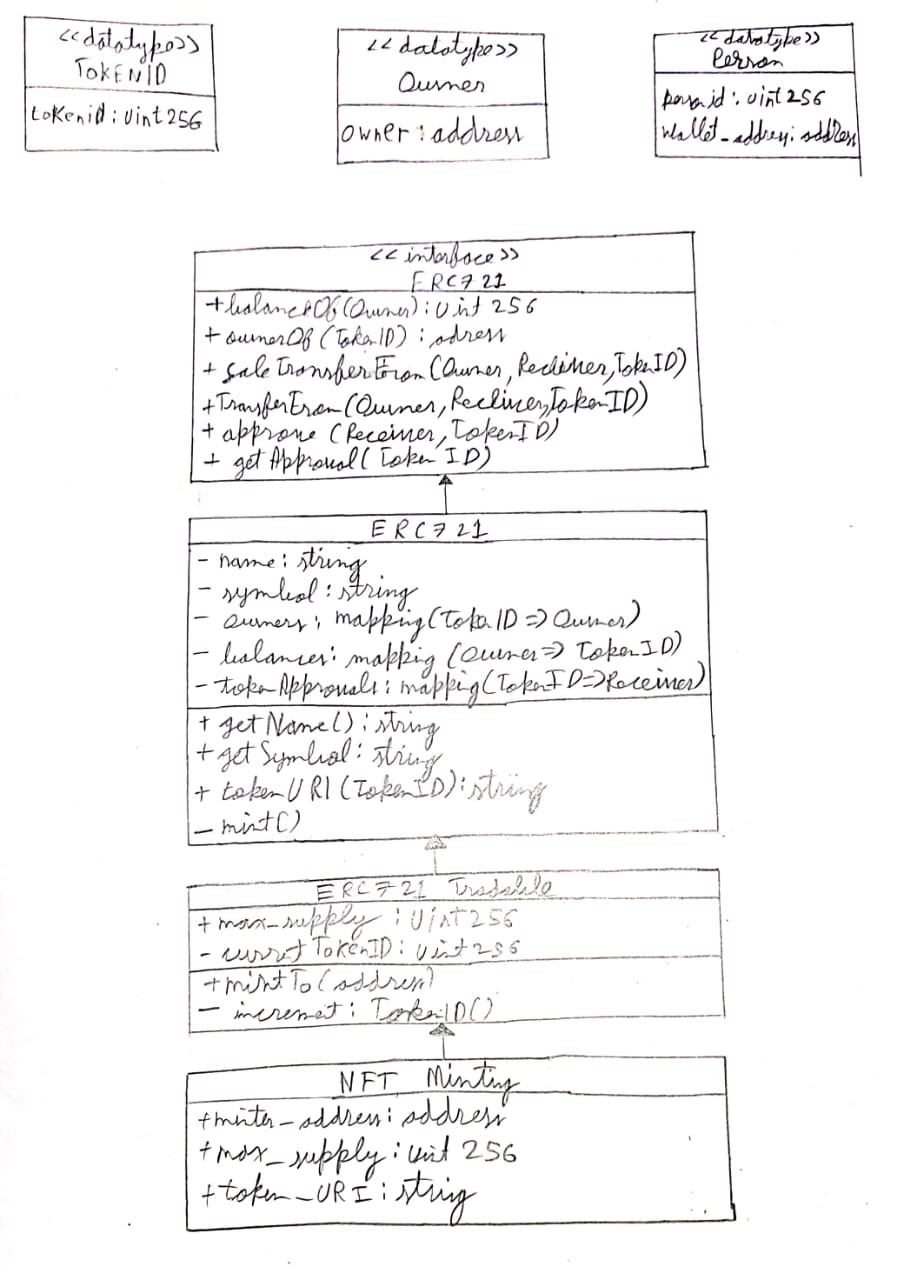 <<datatype>>
TOKENID
tokenid : Uint 256
<<datatype>>
Owner
owner : address
<<datatype>>
Person
person id : Uint 256
Wallet_address: address
<<interface>>
ERC721
+balanceOf(Owner) : Uint 256
+ ownerOf (TokenID) : adress
+ safeTransferFrom(Owner, Reciever, TokenID)
+TransferFrom(Owner, Reciever, TokenID)
+ approve (Receiver, TokenID)
+ getApproval( Token ID)
ERC721
- name : string
- symbol : string
- owners : mapping(TokenID => Owner)
- balances: mapping (Owner => TokenID)
- tokenApprovals: mapping(TokenID=>Receiver)
+ getName() : string
+ getSymbol : string
+ tokenURI (TokenID) : string
- mint()
ERC721 Tradable
+max_supply : Uint 256
- current TokenID : Uint 256
+mintTo (address)
- increment : TokenID()
NFT Minting
+minter_address : address
+max_supply : Uint 256
+token_URI : string